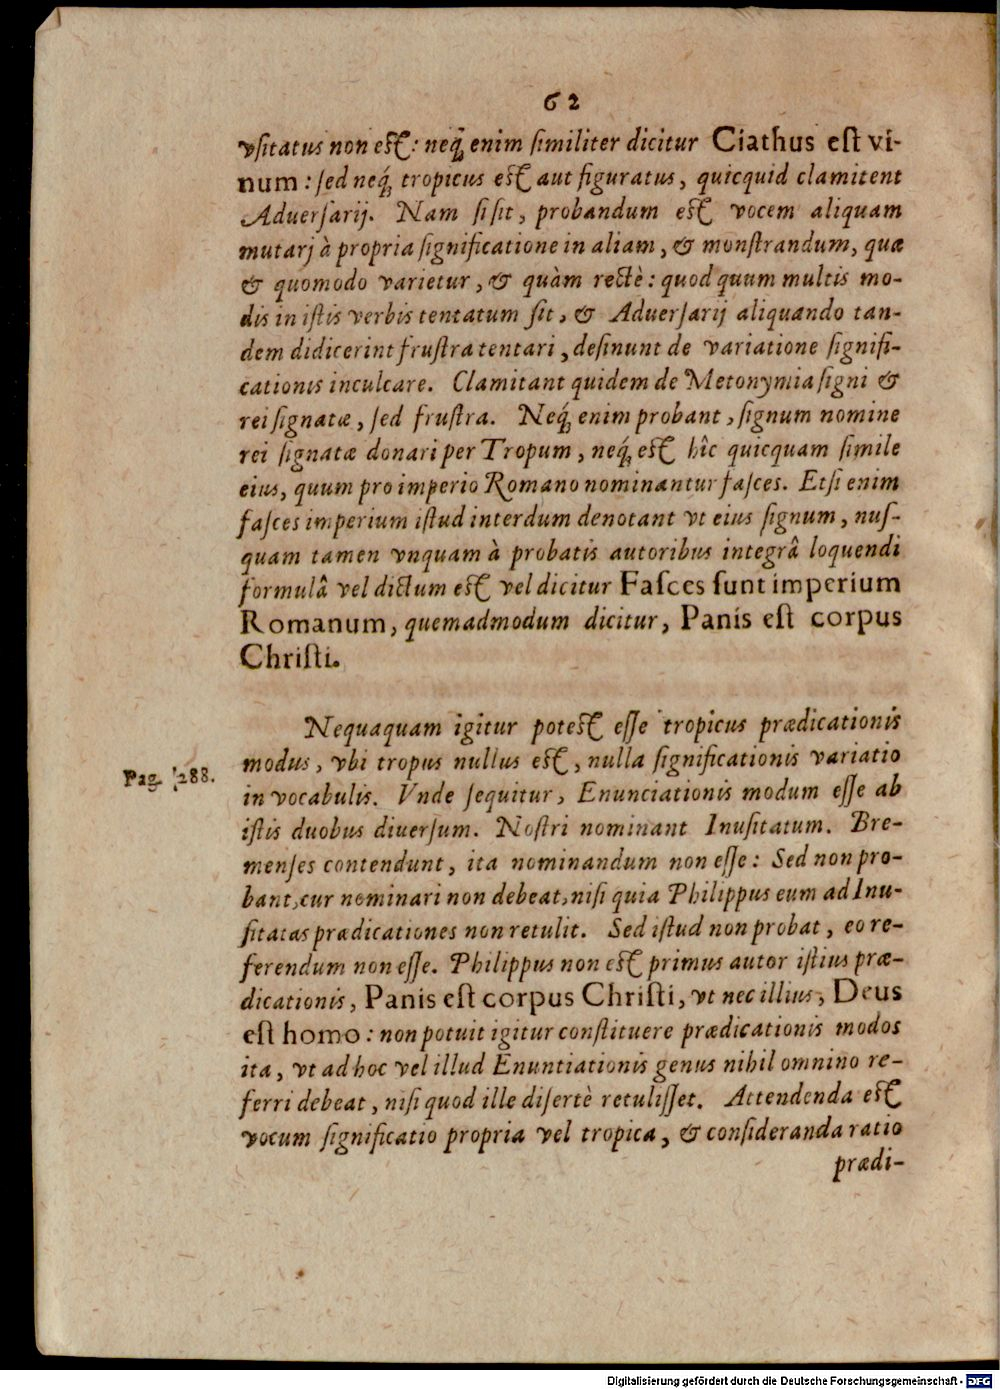 62
vſitatus non eſt: neq́; enim ſimiliter dicitur Ciathus eſt vi-
num: ſed neq́; tropicus eſt aut figuratus, quicquid clamitent
Aduerſarij. Nam ſi ſit, probandum eſt vocem aliquam
mutarj à propria ſignificatione in aliam, & monſtrandum, quæ
& quomodo varietur, & quàm rectè: quod quum multis mo-
dis in iſtis verbis tentatum ſit, & Aduerſarij aliquando tan-
dem didicerint fruſtra tentari, deſinunt de variatione ſignifi-
cationis inculcare. Clamitant quidem de Metonymia ſigni &
rei ſignatæ, ſed fruſtra. Neq́; enim probant, ſignum nomine
rei ſignatæ donari per Tropum, neq́; eſt hîc quicquam ſimile
eius, quum pro imperio Romano nominantur faſces. Etſi enim
faſces imperium iſtud interdum denotant vt eius ſignum, nuſ-
quam tamen vnquam à probatis autoribus integrâ loquendi
formulâ vel dictum eſt vel dicitur Faſces ſunt imperium
Romanum, quemadmodum dicitur, Panis eſt corpus
Chriſti.
Nequaquam igitur poteſt eſſe tropicus prædicationis
modus, vbi tropus nullus eſt, nulla ſignificationis variatio
Pag. 288.
in vocabulis. Vnde ſequitur, Enunciationis modum eſſe ab
iſtis duobus diuerſum. Noſtri nominant Inuſitatum. Bre-
menſes contendunt, ita nominandum non eſſe: Sed non pro-
bant, cur nominari non debeat, niſi quia Philippus eum ad Inu-
ſitatas prædicationes non retulit. Sed iſtud non probat, eo re-
ferendum non eſſe. Philippus non eſt primus autor iſtius præ-
dicationis, Panis eſt corpus Chriſti, vt nec illius, Deus
eſt homo: non potuit igitur conſtituere prædicationis modos
ita, vt ad hoc vel illud Enuntiationis genus nihil omnino re-
ferri debeat, niſi quod ille diſertè retuliſſet. Attendenda eſt
vocum ſignificatio propria vel tropica, & conſideranda ratio
prædi-
Digitalisierung gefördert durch die Deutsche Forschungsgemeinschaft - DFG